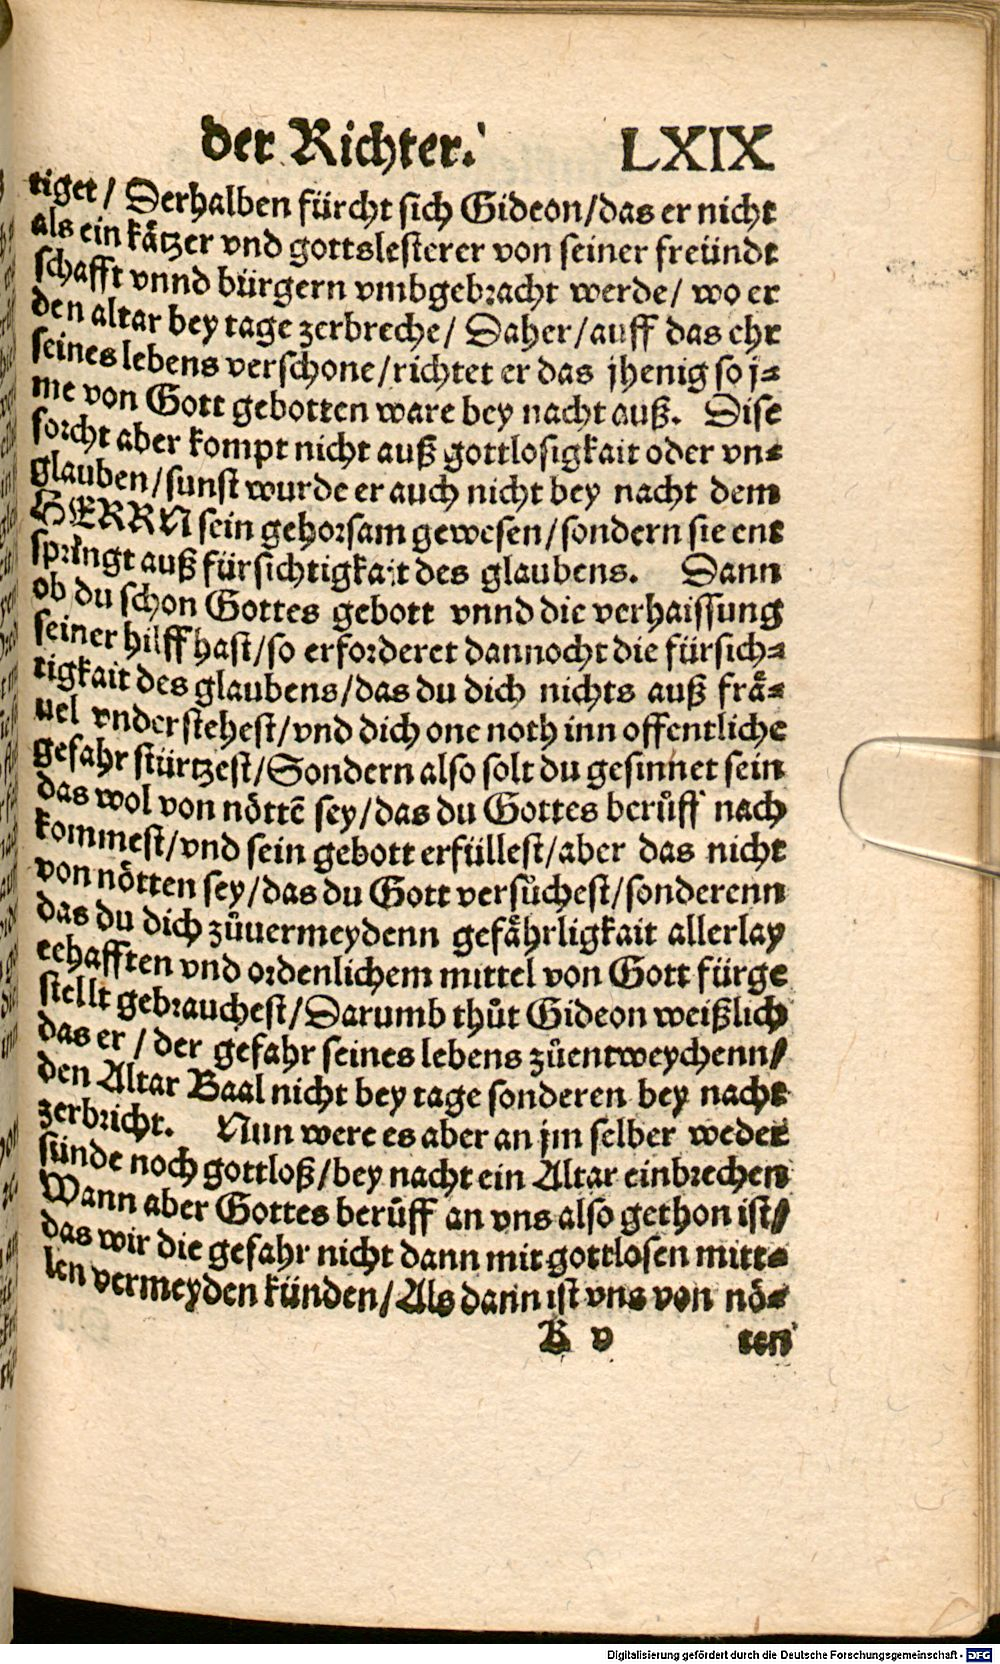 der Richter. LXIX
tiget / Derhalben fürcht sich Gideon / das er nicht
als ein kätzer vnd gottslesterer von seiner freündt
schafft vnnd bürgern vmbgebracht werde / wo er
den altar bey tage zerbreche / Daher / auff das ehr
seines lebens verschone / richtet er das jhenig so j⸗
me von Gott gebotten ware bey nacht auß. Dise
forcht aber kompt nicht auß gottlosigkait oder vn⸗
glauben / sunst wurde er auch nicht bey nacht dem
HERRN sein gehorsam gewesen / sondern sie ent
springt auß fürsichtigkait des glaubens. Dann
ob du schon Gottes gebott vnnd die verhaissung
seiner hilff hast / so erforderet dannocht die fürsich⸗
tigkait des glaubens / das du dich nichts auß frä⸗
uel vnderstehest / vnd dich one noth inn offentliche
gefahr stürtzest / Sondern also solt du gesinnet sein
das wol von nöttē sey / das du Gottes berůff nach
kommest / vnd sein gebott erfüllest / aber das nicht
von nötten sey / das du Gott versůchest / sonderenn
das du dich zůuermeydenn gefährligkait allerlay
eehafften vnd ordenlichem mittel von Gott fürge
stellt gebrauchest / Darumb thůt Gideon weißlich
das er / der gefahr seines lebens zůentweychenn /
den Altar Baal nicht bey tage sonderen bey nacht
zerbricht. Nun were es aber an jm selber weder
sünde noch gottloß / bey nacht ein Altar einbrechen
Wann aber Gottes berůff an vns also gethon ist /
das wir die gefahr nicht dann mit gottlosen mitt⸗
len vermeyden künden / Als dann ist vns von nö⸗
K v ten
Digitalisierung gefördert durch die Deutsche Forschungsgemeinschaft - DFG